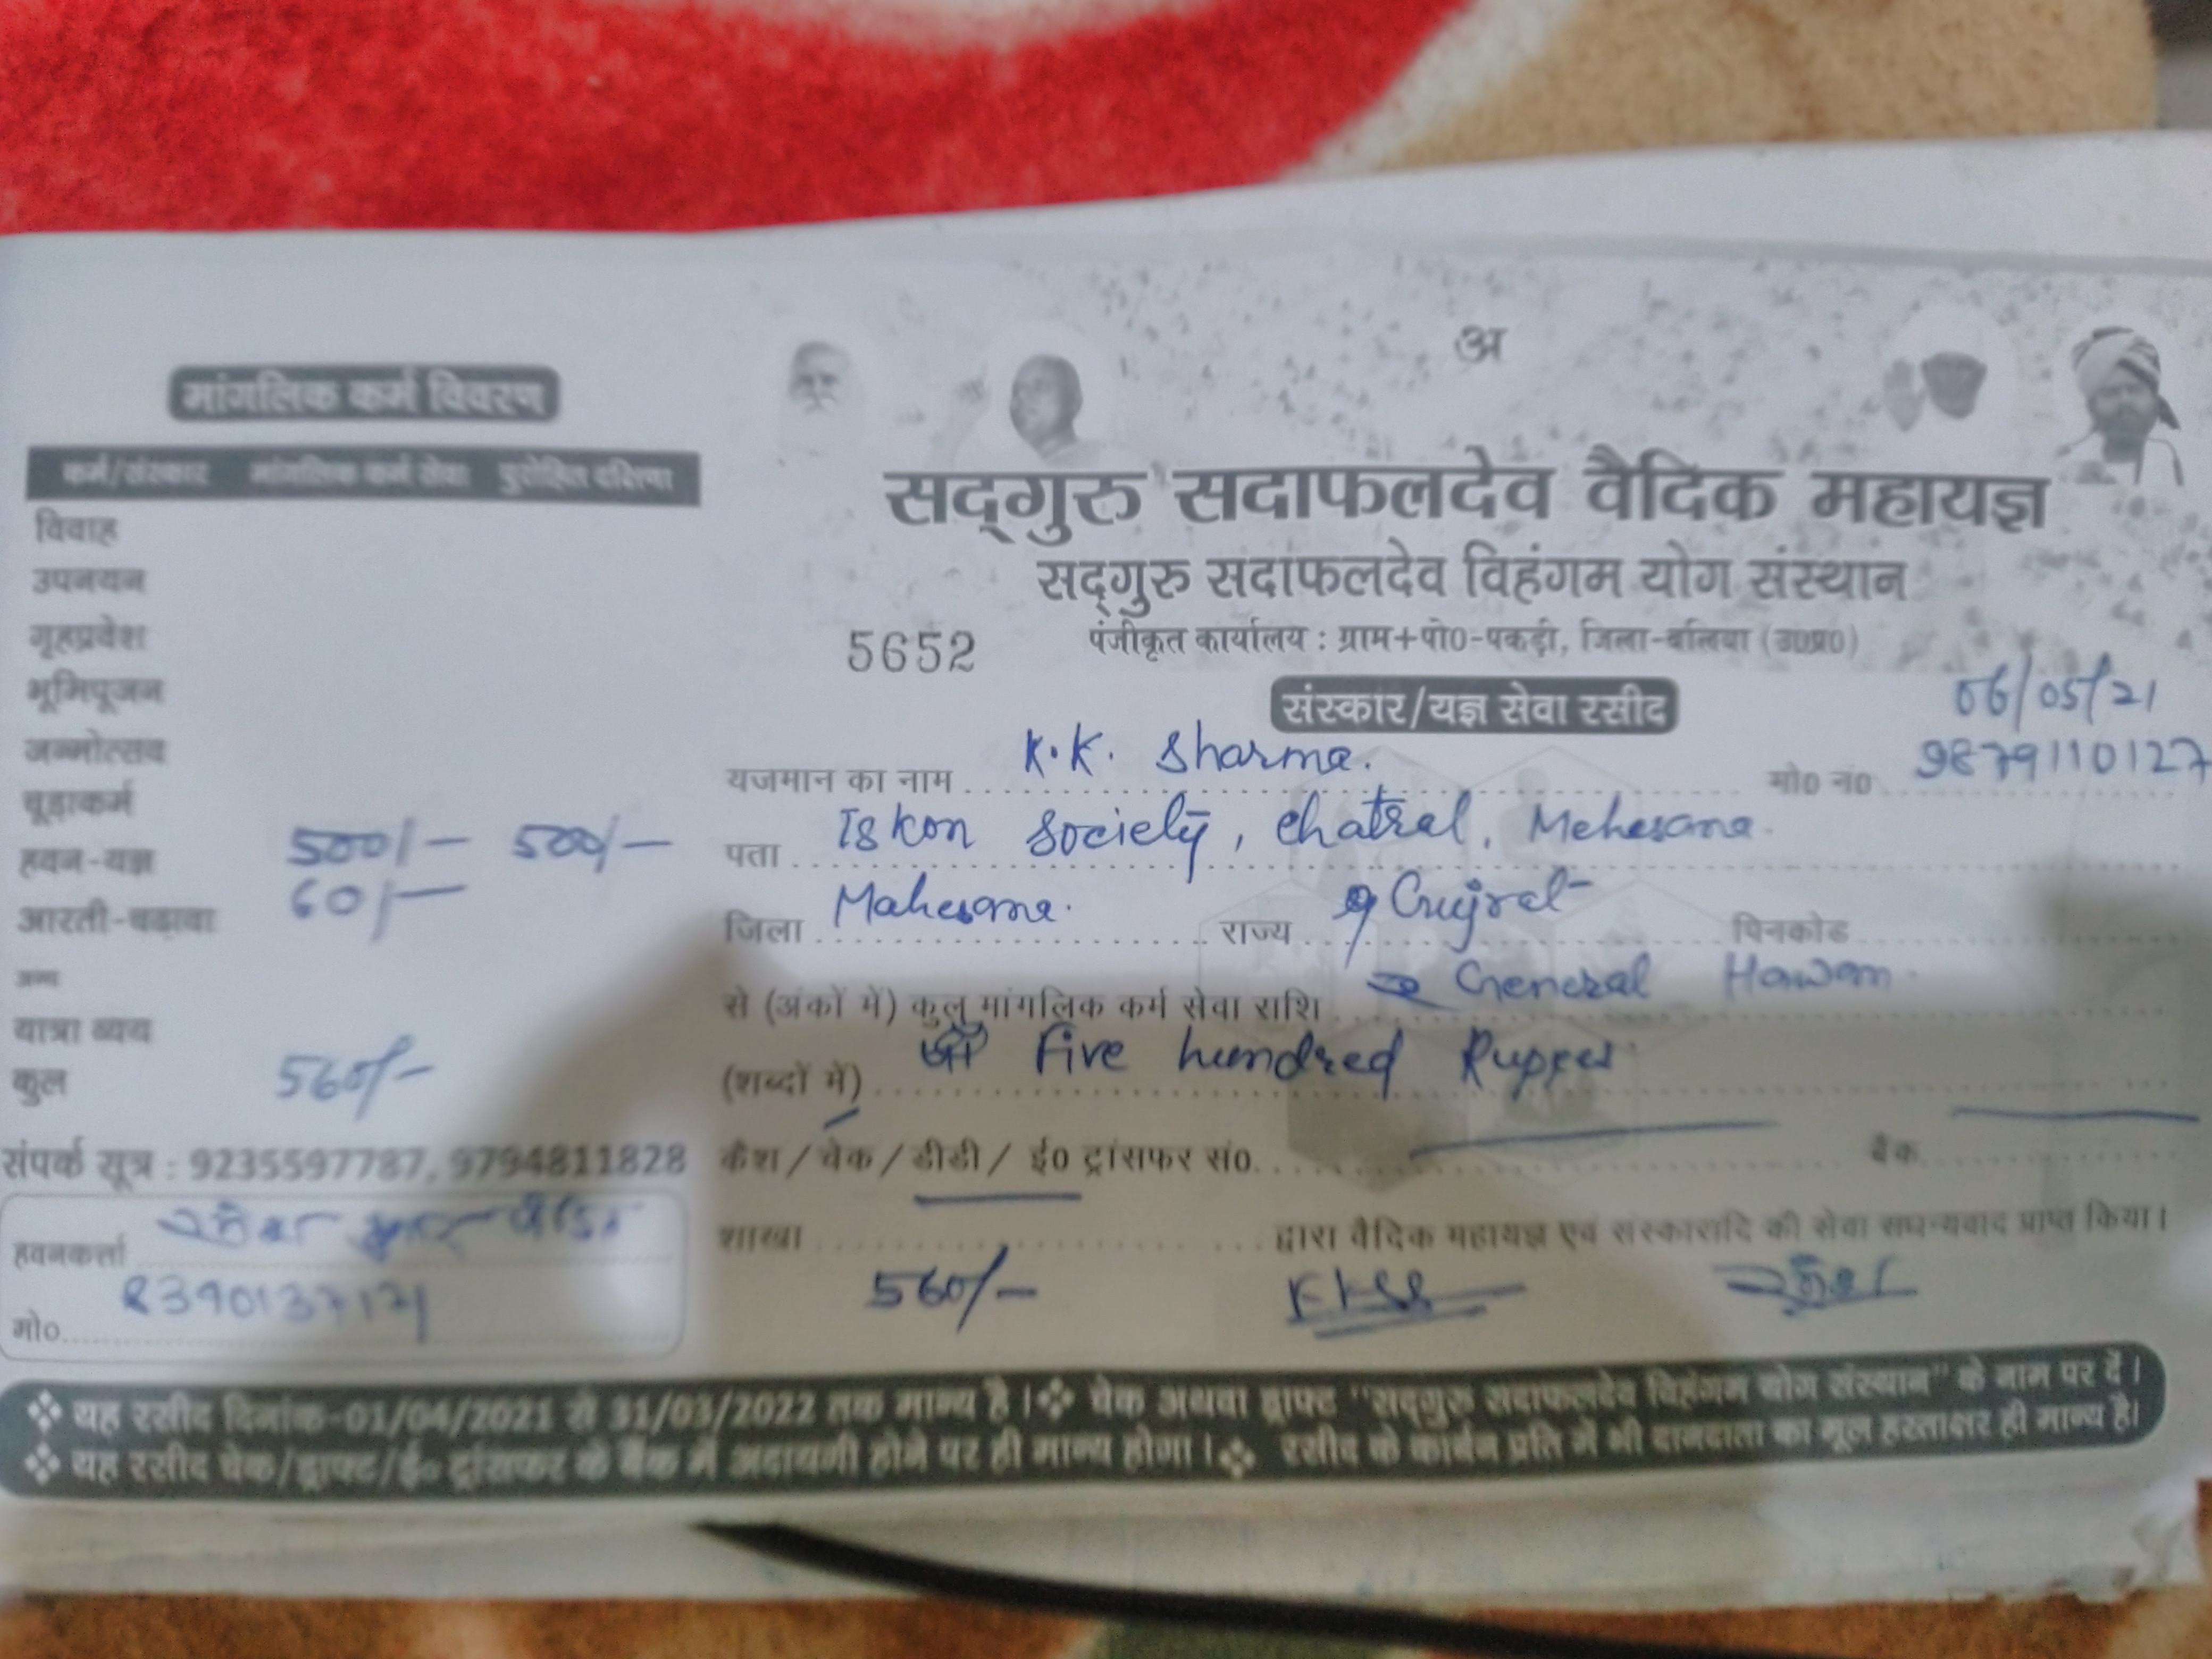 अ
मांगलिक कर्म विवरण
कर्म/संस्कार मांगलिक कर्म सेवा पुरोहित दक्षिणा
विवाह
उपनयन
गृहप्रवेश
भूमिपूजन
जन्मोत्सव
चूड़ाकर्म
हवन-यज्ञ 500/- 500/-
आरती-चढ़ावा 60/-
अन्य
यात्रा व्यय
कुल 560/-
संपर्क सूत्र : 9235597787, 9794811828
हवनकर्त्ता
मो०
सद्गुरु सदाफलदेव वैदिक महायज्ञ
सद्गुरु सदाफलदेव विहंगम योग संस्थान
5652 पंजीकृत कार्यालय : ग्राम+पो०-पकड़ी, जिला-बलिया (उ०प्र०)
संस्कार/यज्ञ सेवा रसीद 06/05/21
यजमान का नाम K.K. Sharma. मो० नं० 9879110127
पता Iskon Society, Chatral, Mehesana.
जिला Mahesana. राज्य Gujrat पिनकोड
से (अंकों में) कुल मांगलिक कर्म सेवा राशि General Hawan
(शब्दों में) Five hundred Rupees
कैश / चेक / डीडी / ई० ट्रांसफर सं०. बैंक
शाखा द्वारा वैदिक महायज्ञ एवं संस्कारादि की सेवा सधन्यवाद प्राप्त किया।
560/-
यह रसीद दिनांक-01/04/2021 से 31/03/2022 तक मान्य है। चेक अथवा ड्राफ्ट "सद्गुरु सदाफलदेव विहंगम योग संस्थान" के नाम पर दें।
यह रसीद चेक/ड्राफ्ट/ई० ट्रांसफर के बैंक में अदायगी होने पर ही मान्य होगा। रसीद के कार्बन प्रति में भी दानदाता का मूल हस्ताक्षर ही मान्य है।